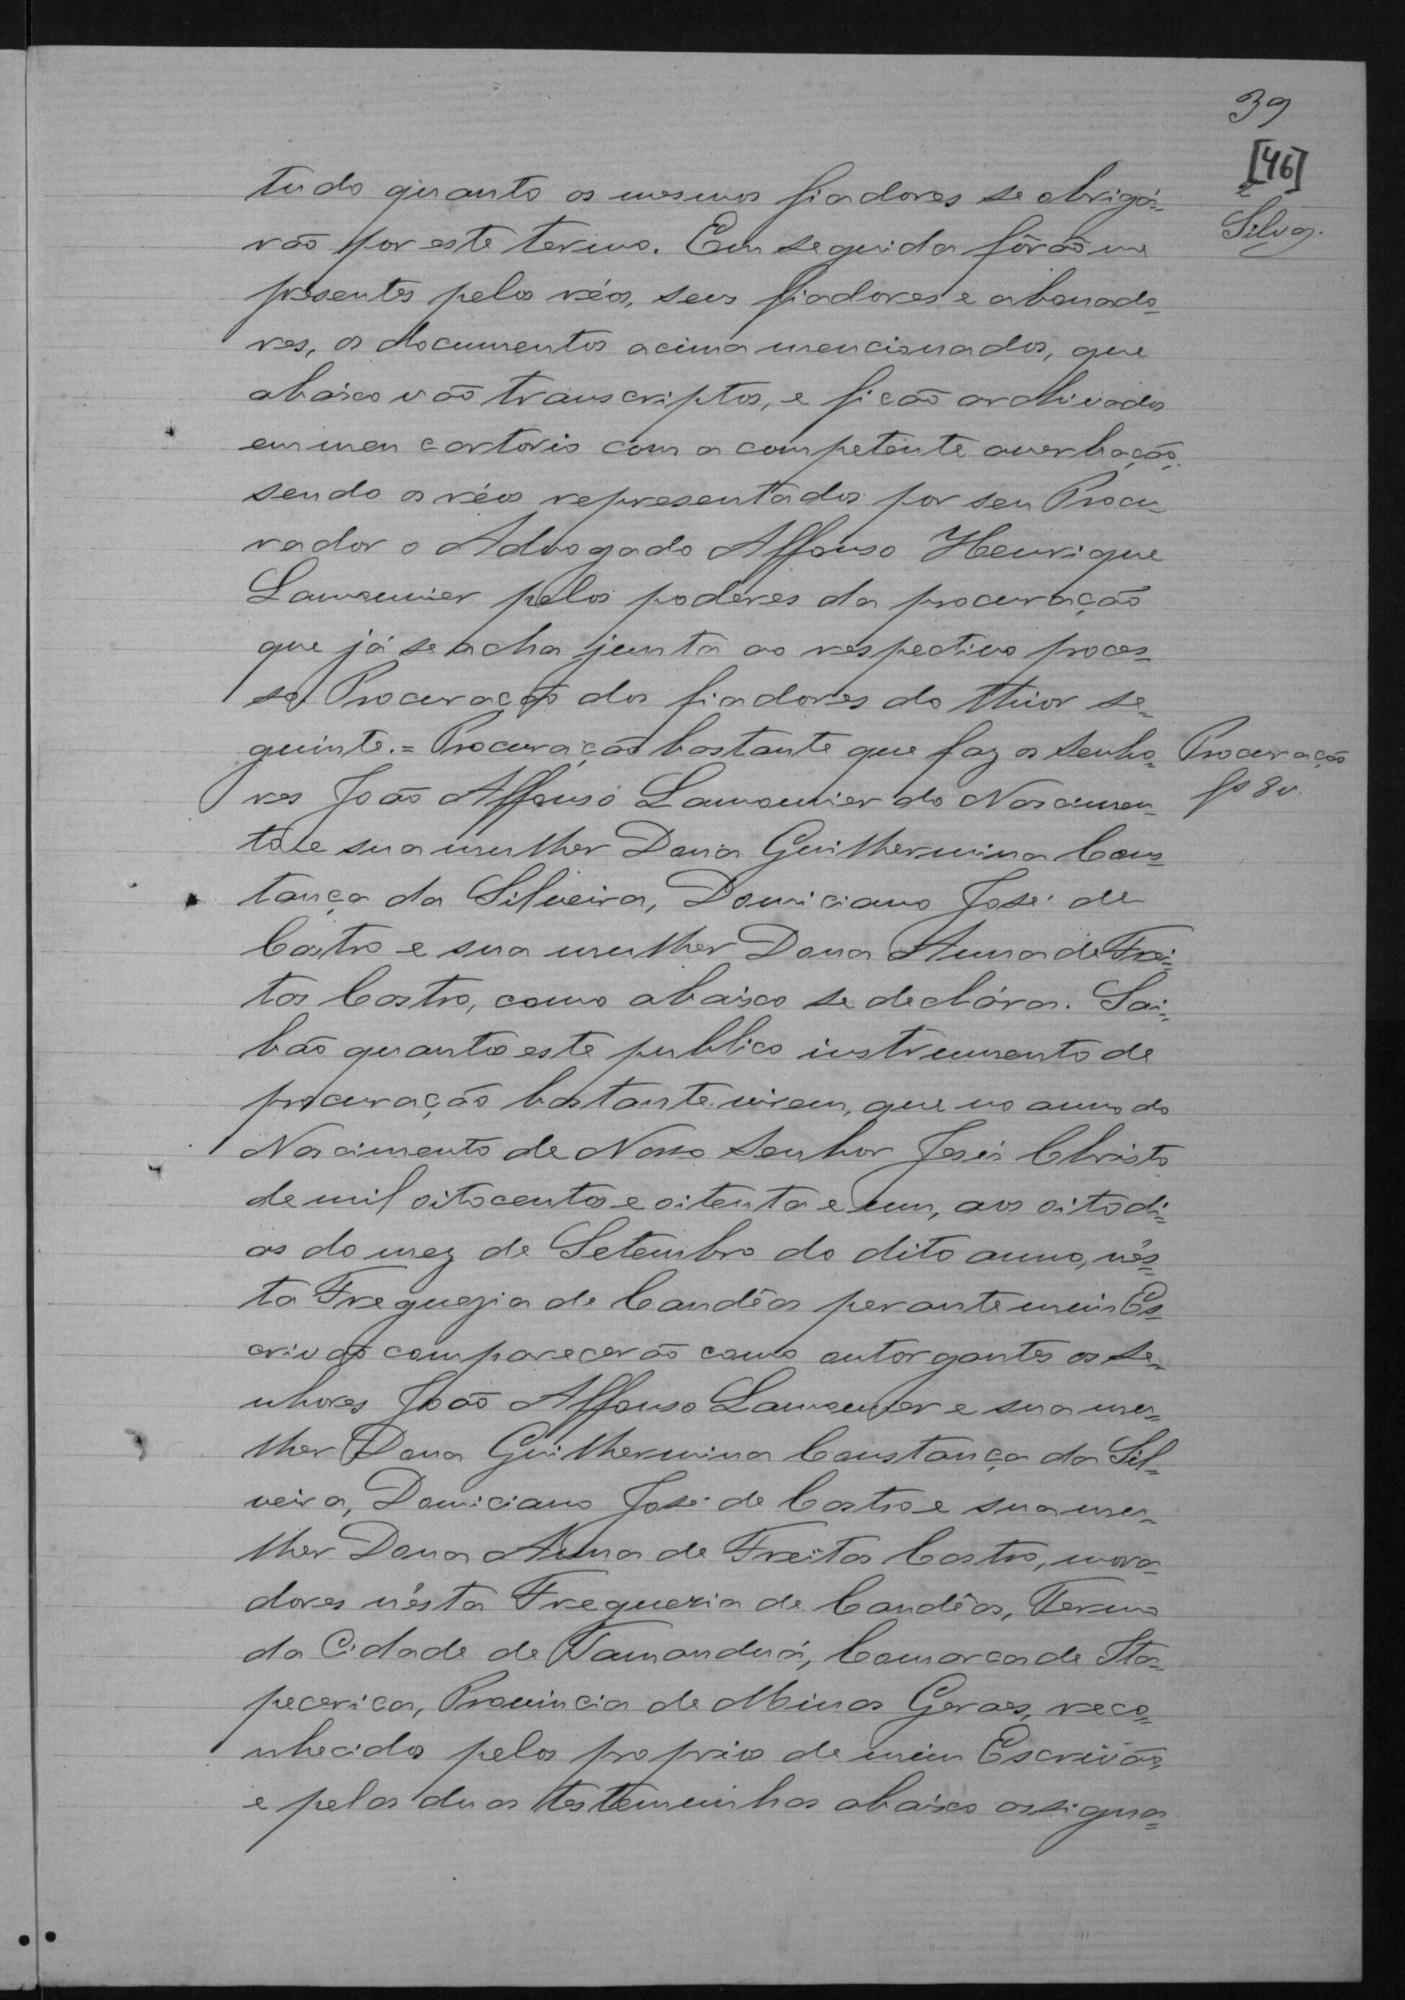 39
[46]
e
Silva.
tudo quanto os mesmos fiadores se obrigá-
rão por este termo. Em seguida fôrão me
presentes pelos réos, seus fiadores e abonado-
res, os documentos acima mencionados, que
abaixo vão transcriptos, e ficão archivados
em meu cartorio com a competente averbação,
sendo os réos representados por seu Procu-
rador o Advogado Affonso Henrique
Lamounier pelos poderes da procuração
que já se acha junta ao respectivo proces-
so. Procuração dos fiadores do thior se-
guinte. = Procuração bastante que faz os Senho-
Procuração
fs 8v.
res João Affonso Lamounier do Nascimen-
to e sua mulher Dona Guilhermina Cons-
tança da Silveira, Domiciano José de
Castro e sua mulher Dona Anna de Frei-
tas Castro, como abaixo se declára. Sai-
bão quantos este publico instrumento de
procuração bastante virem, que no anno do
Nascimento de Nosso Senhor Jesús Christo
de mil oitocentos e oitenta e um, aos oito di-
as do mez de Setembro do dito anno, nés-
ta Freguezia de Candêas perante mim Es-
crivão comparecerão como outorgantes os Se-
nhores João Affonso Lamounier e sua mu-
lher Dona Guilhermina Constança da Sil-
veira, Domiciano José de Castro e sua mu-
lher Dona Anna de Freitas Castro, mora-
dores nésta Freguezia de Candêas, Termo
da Cidade de Tamanduá, Comarca de Ita-
pecerica, Provincia de Minas Geraes, reco-
nhecidos pelos proprios de mim Escrivão,
e pelas duas testemunhas abaixo assigna-